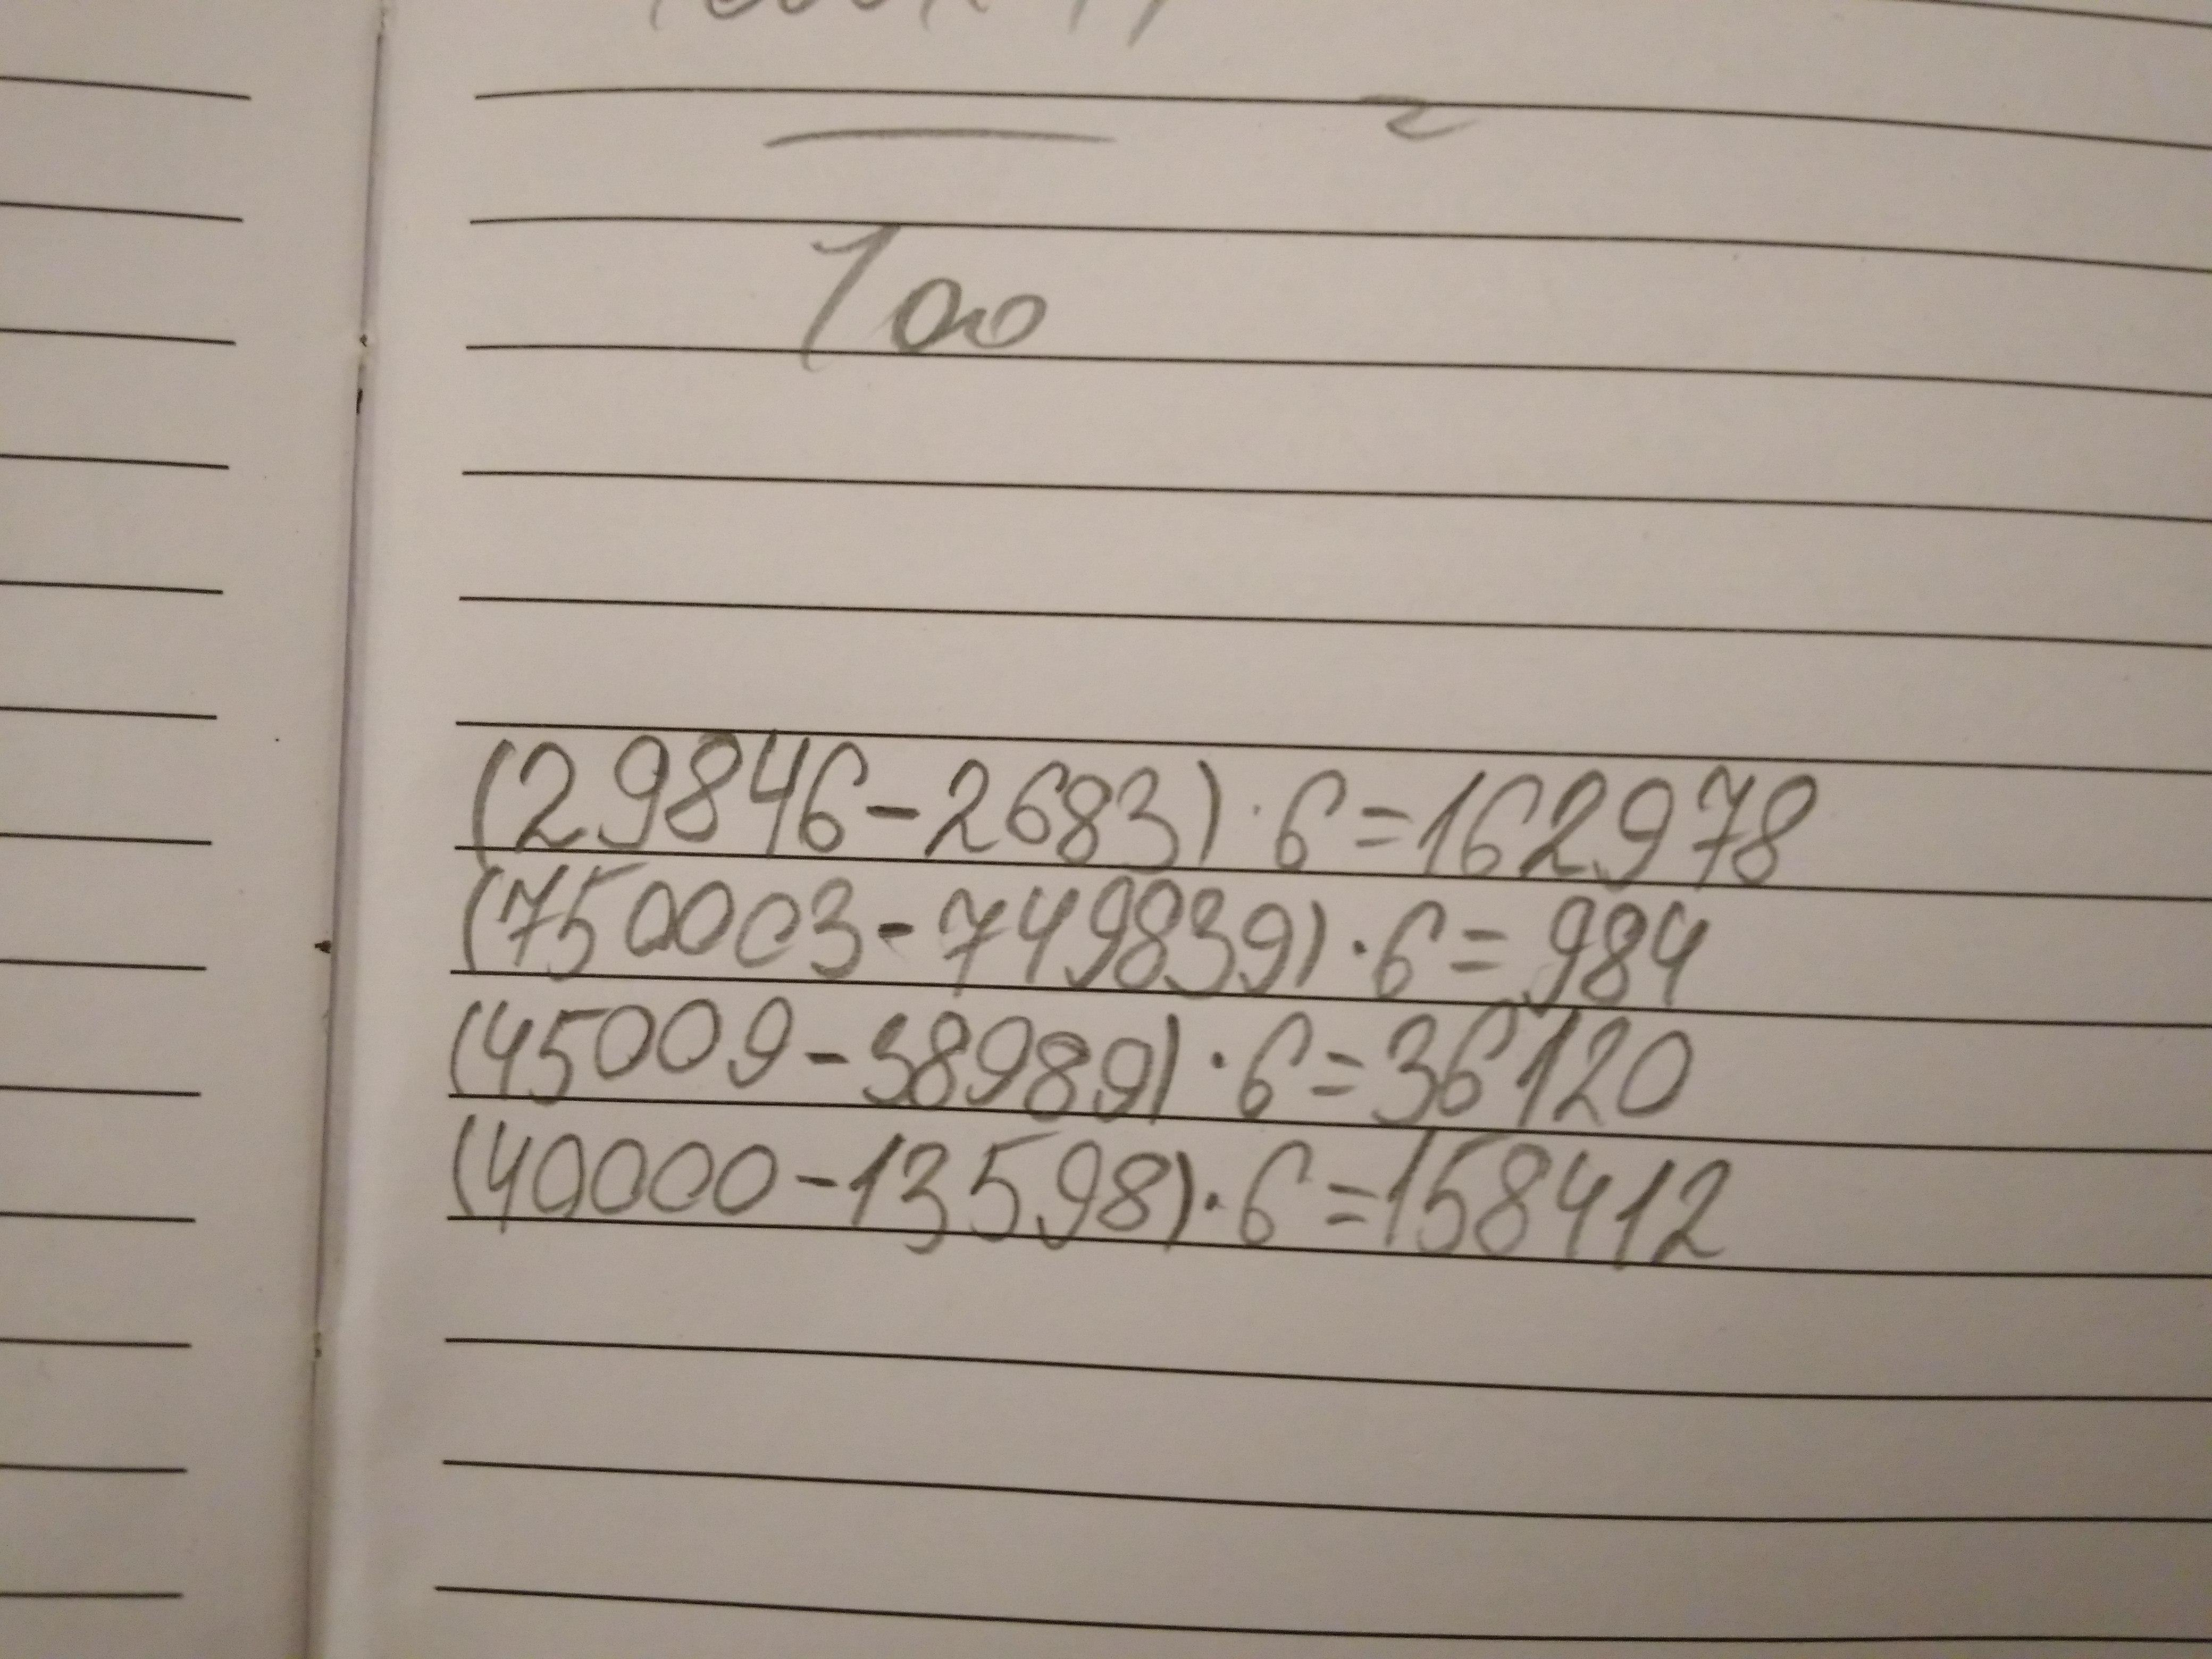 2
100
(29846-2683)·6=162978
(750003-749839)·6=984
(45009-38989)·6=36120
(40000-13598)·6=158412